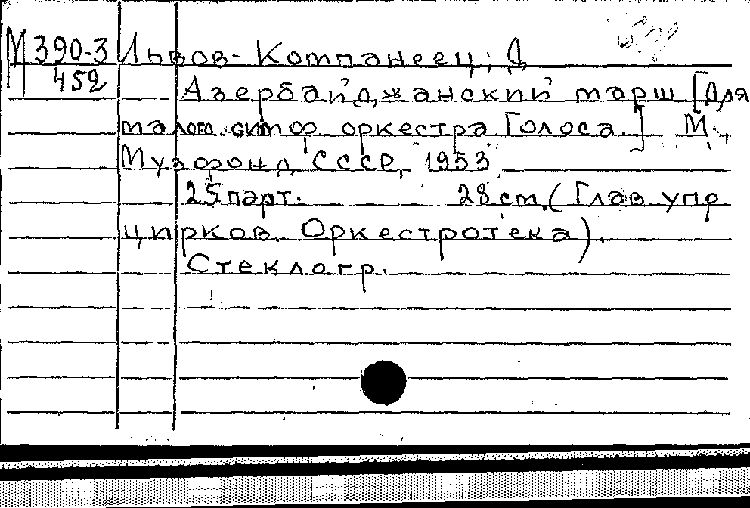 М 390-3 Львов-Компанеец, Д.
452
Азербайджанский марш [Для
малого симф. оркестра. Голоса.] М.,
Музфонд СССР, 1953.
25 парт. 28 см. (Глав. упр.
цирков. Оркестротека).
Стеклогр.